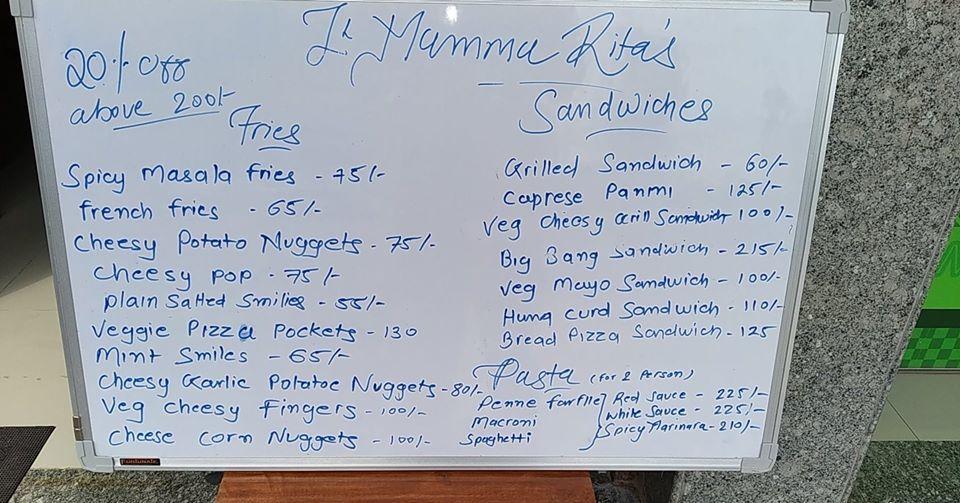 Mamma Rita's
20% Off
above 200/-
Fries
Spicy Masala fries - 75/-
french fries - 65/-
Cheesy Potato Nuggets - 75/-
Cheesy POP - 75/-
Plain Salted Smilies - 55/-
Veggie Pizza Pockets - 130
Mint Smiles - 65/-
Cheesy Garlic Potatoe Nuggets - 80/-
Veg Cheesy Fingers - 100/-
Cheese corn Nuggets - 100/-
Sandwiches
Grilled Sandwich - 60/-
Caprese Panini - 125/-
Veg Cheesy Grill Sandwich 100/-
Big Bang Sandwich - 215/-
Veg Mayo Sandwich - 100/-
Hung curd Sandwich - 110/-
Bread Pizza Sandwich - 125
Pasta (for 2 Person)
Penne farflle Red Sauce - 225/-
Macroni White Sauce - 225/-
Spaghetti Spicy Marinara - 210/-